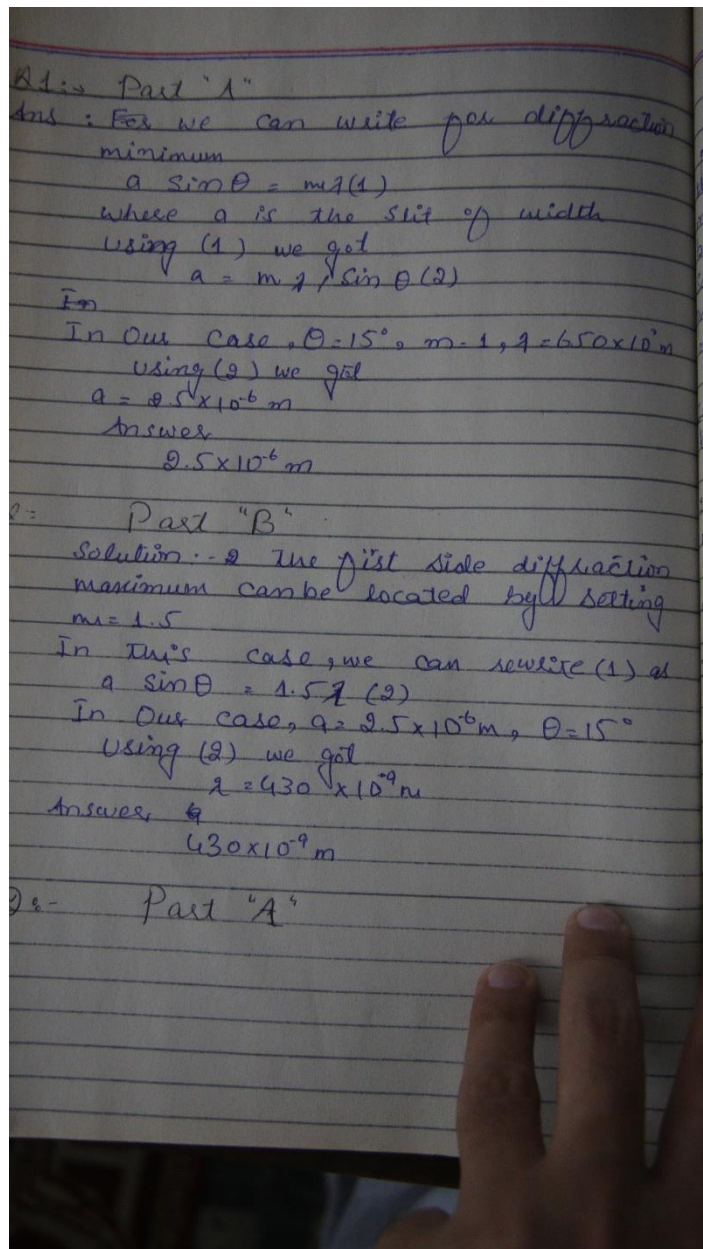 Q1:→ Part "A"
Ans : For we can write for diffraction
minimum
a sinθ = mλ(1)
where a is the slit of width
using (1) we got
a = mλ/sinθ(2)
In
In Our case, θ=15°, m-1, λ=650x10 m
using(2) we got
a = 2.5x10⁻⁶ m
Answer
2.5x10⁻⁶ m
Part "B"
Solution.. The fist side diffraction
maximum can be located by setting
m= 1.5
In this case, we can rewrite (1) as
a sinθ = 1.5λ (2)
In Our case, a= 2.5x10⁻⁶m, θ=15°
using (2) we got
λ=430 x10⁻⁹m
Answer
430x10⁻⁹ m
Part "A"